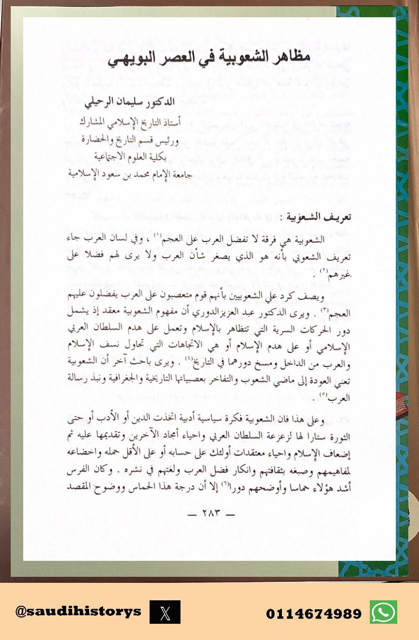 مظاهر الشعوبية في العصر البويهي
الدكتور سليمان الرحيلي
أستاذ التاريخ الإسلامي المشارك
ورئيس قسم التاريخ والحضارة
بكلية العلوم الاجتماعية
جامعة الإمام محمد بن سعود الإسلامية
تعريف الشعوبية :
الشعوبية هي فرقة لا تفضل العرب على العجم(١) ، وفي لسان العرب جاء
تعريف الشعوبي بأنه هو الذي يصغر شأن العرب ولا يرى لهم فضلا على
غيرهم(٢) .
ويصف كرد علي الشعوبيين بأنهم قوم متعصبون على العرب يفضلون عليهم
العجم(٣) . ويرى الدكتور عبد العزيز الدوري أن مفهوم الشعوبية معقد إذ يشمل
دور الحركات السرية التي تتظاهر بالإسلام وتعمل على هدم السلطان العربي
الإسلامي أو على هدم الإسلام أو هي الاتجاهات التي تحاول نسف الإسلام
والعرب من الداخل ومسخ دورهما في التاريخ(٤) . ويرى باحث آخر أن الشعوبية
تعني العودة إلى ماضي الشعوب والتفاخر بعصبياتها التاريخية والجغرافية ونبذ رسالة
العرب(٥) .
وعلى هذا فان الشعوبية فكرة سياسية أدبية اتخذت الدين أو الأدب أو حتى
الثورة ستارا لها لزعزعة السلطان العربي واحياء أمجاد الآخرين وتقديمها عليه ثم
إضعاف الإسلام واحياء معتقدات أولئك على حسابه أو على الأقل حمله واخضاعه
لمفاهيمهم وصبغه بثقافتهم وانكار فضل العرب ولغتهم في نشره . وكان الفرس
أشد هؤلاء حماسا وأوضحهم دورا(٦) إلا أن درجة هذا الحماس ووضوح المقصد
— ٢٨٣ —
@saudihistorys X 0114674989